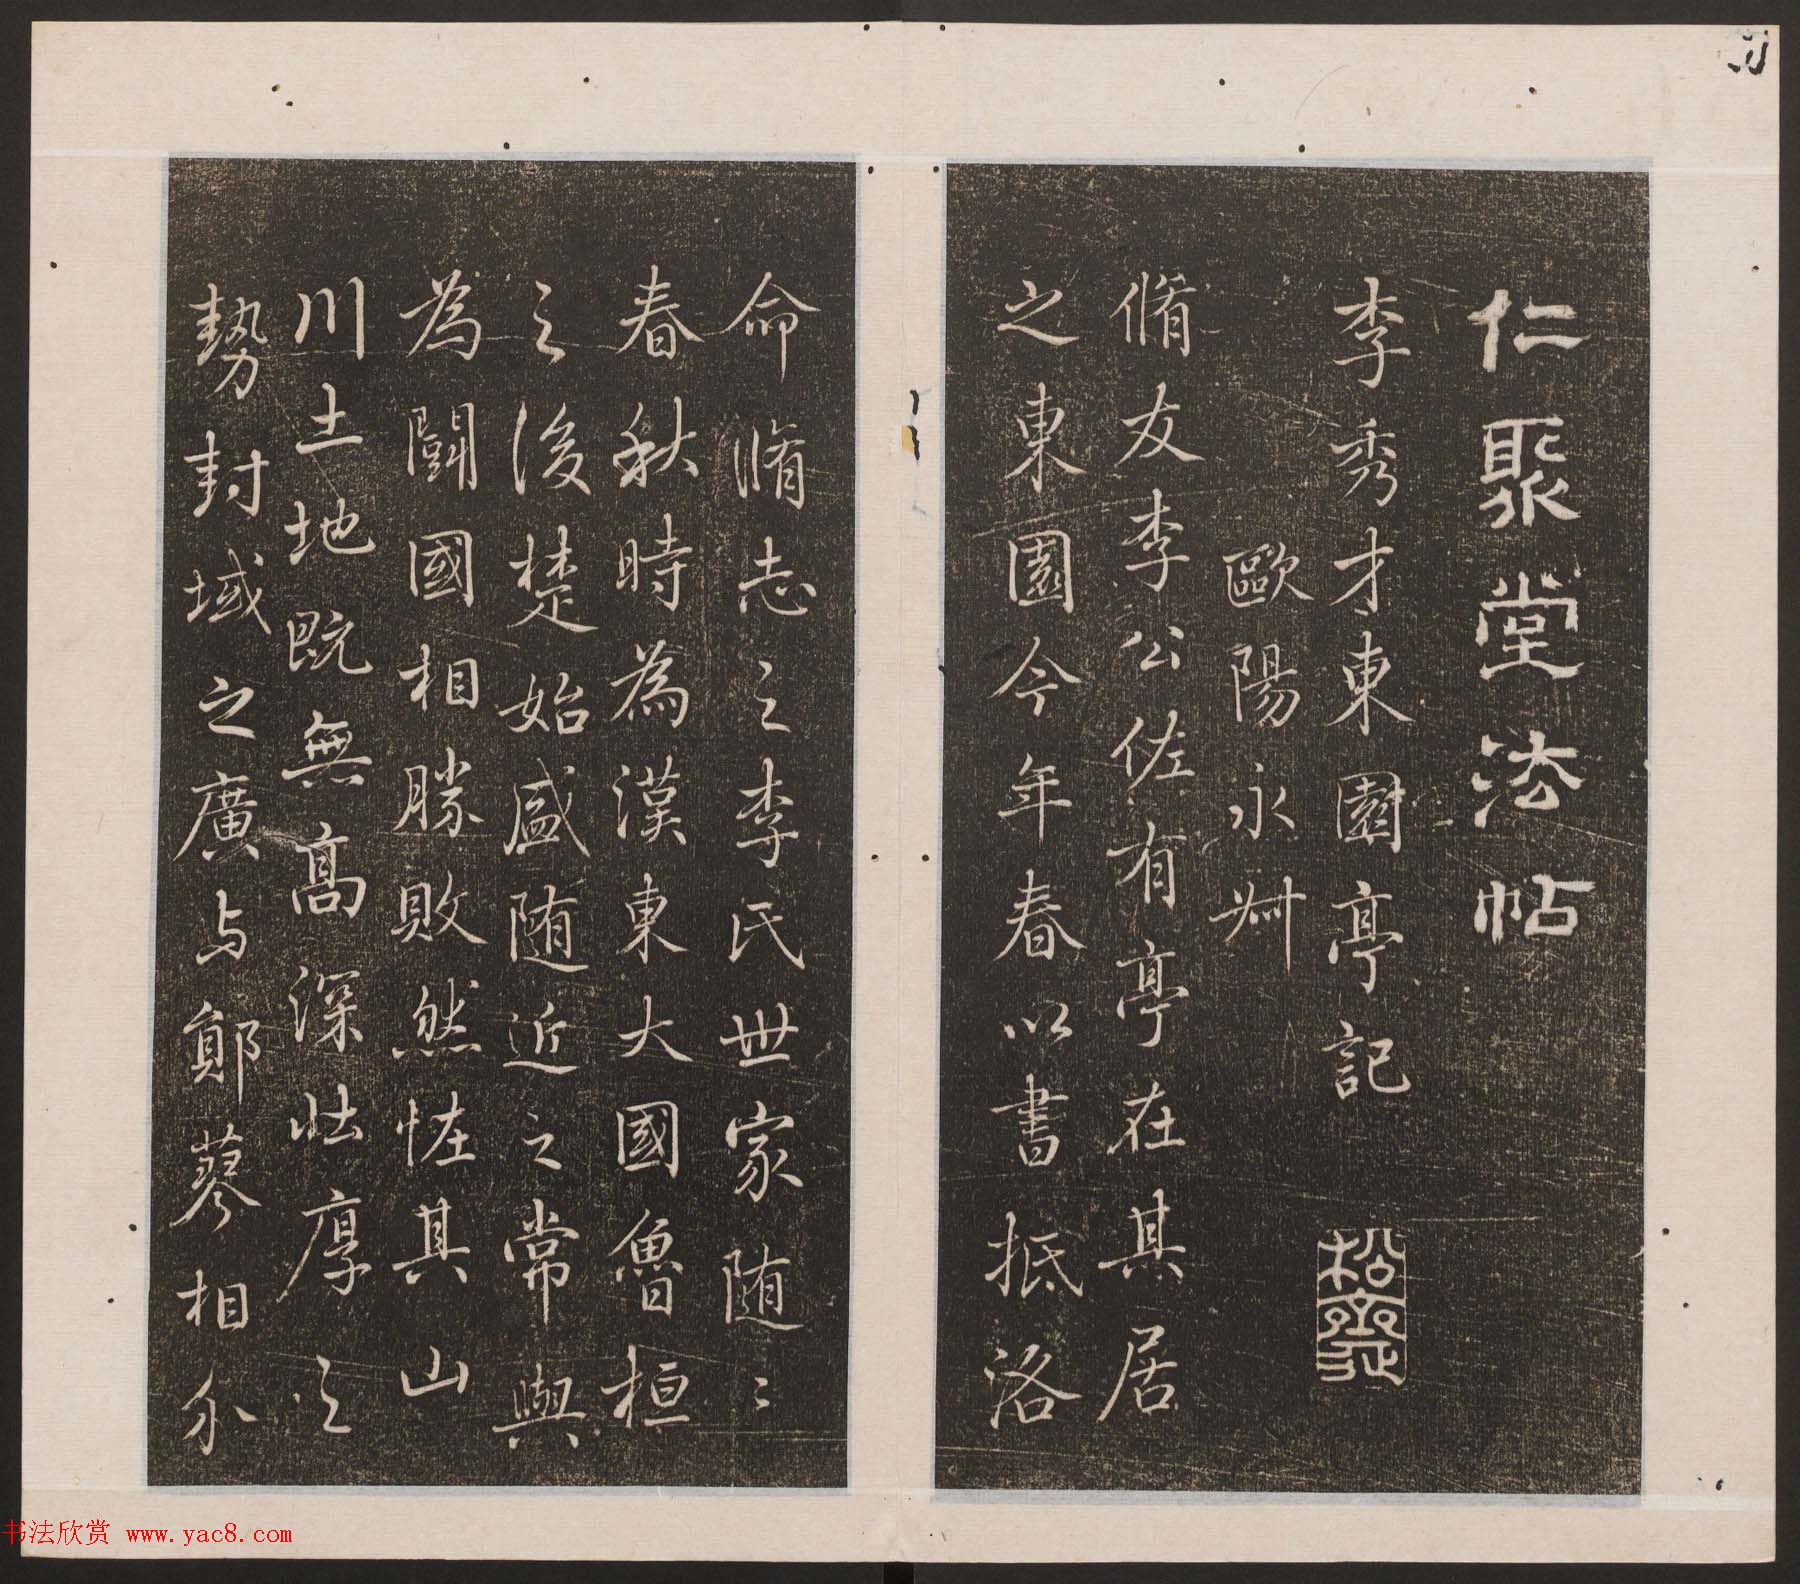 仁聚堂法帖
李秀才東園亭記
歐陽永州
脩友李公佐有亭在其居
之東園今年春以書抵洛
命脩志之李氏世家随〻
春秋時為漢東大國魯桓
之後楚始盛随近之常與
為鬪國相勝敗然怪其山
川土地既無高深壯厚之
勢封域之廣与鄖蓼相介
松齋
书法欣赏 www.yac8.com